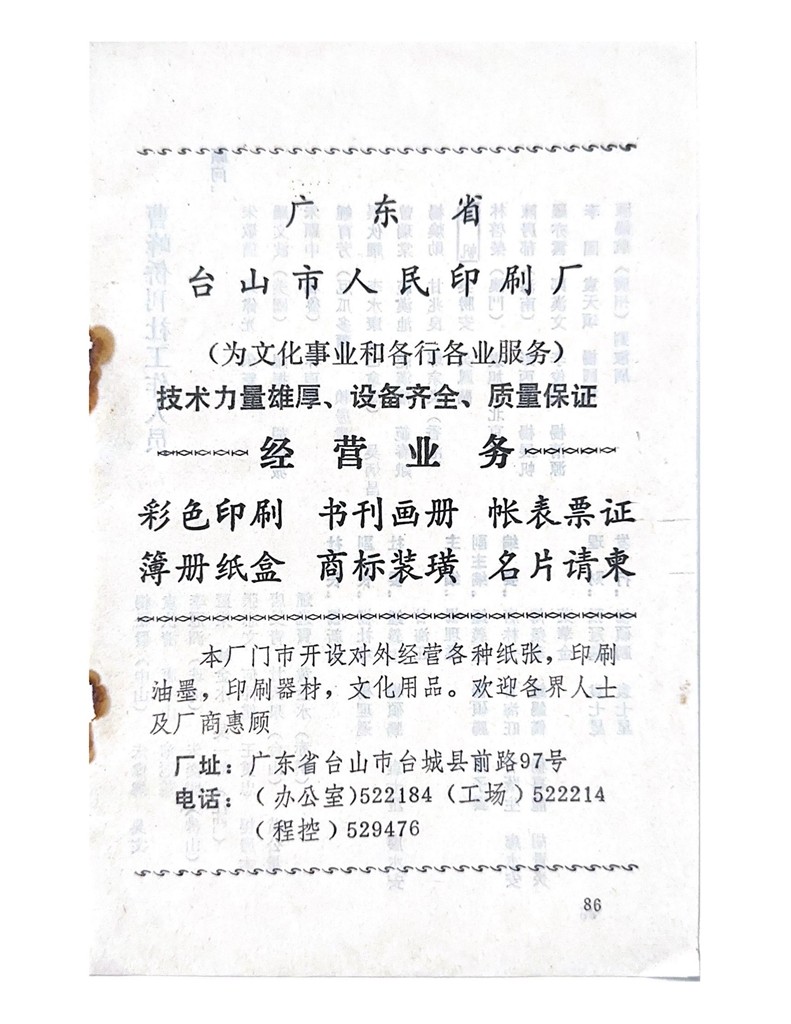 广东省
台山市人民印刷厂
（为文化事业和各行各业服务）
技术力量雄厚、设备齐全、质量保证
经营业务
彩色印刷 书刊画册 帐表票证
簿册纸盒 商标装璜 名片请柬
本厂门市开设对外经营各种纸张，印刷
油墨，印刷器材，文化用品。欢迎各界人士
及厂商惠顾
厂址：广东省台山市台城县前路97号
电话：（办公室）522184（工场）522214
（程控）529476
86